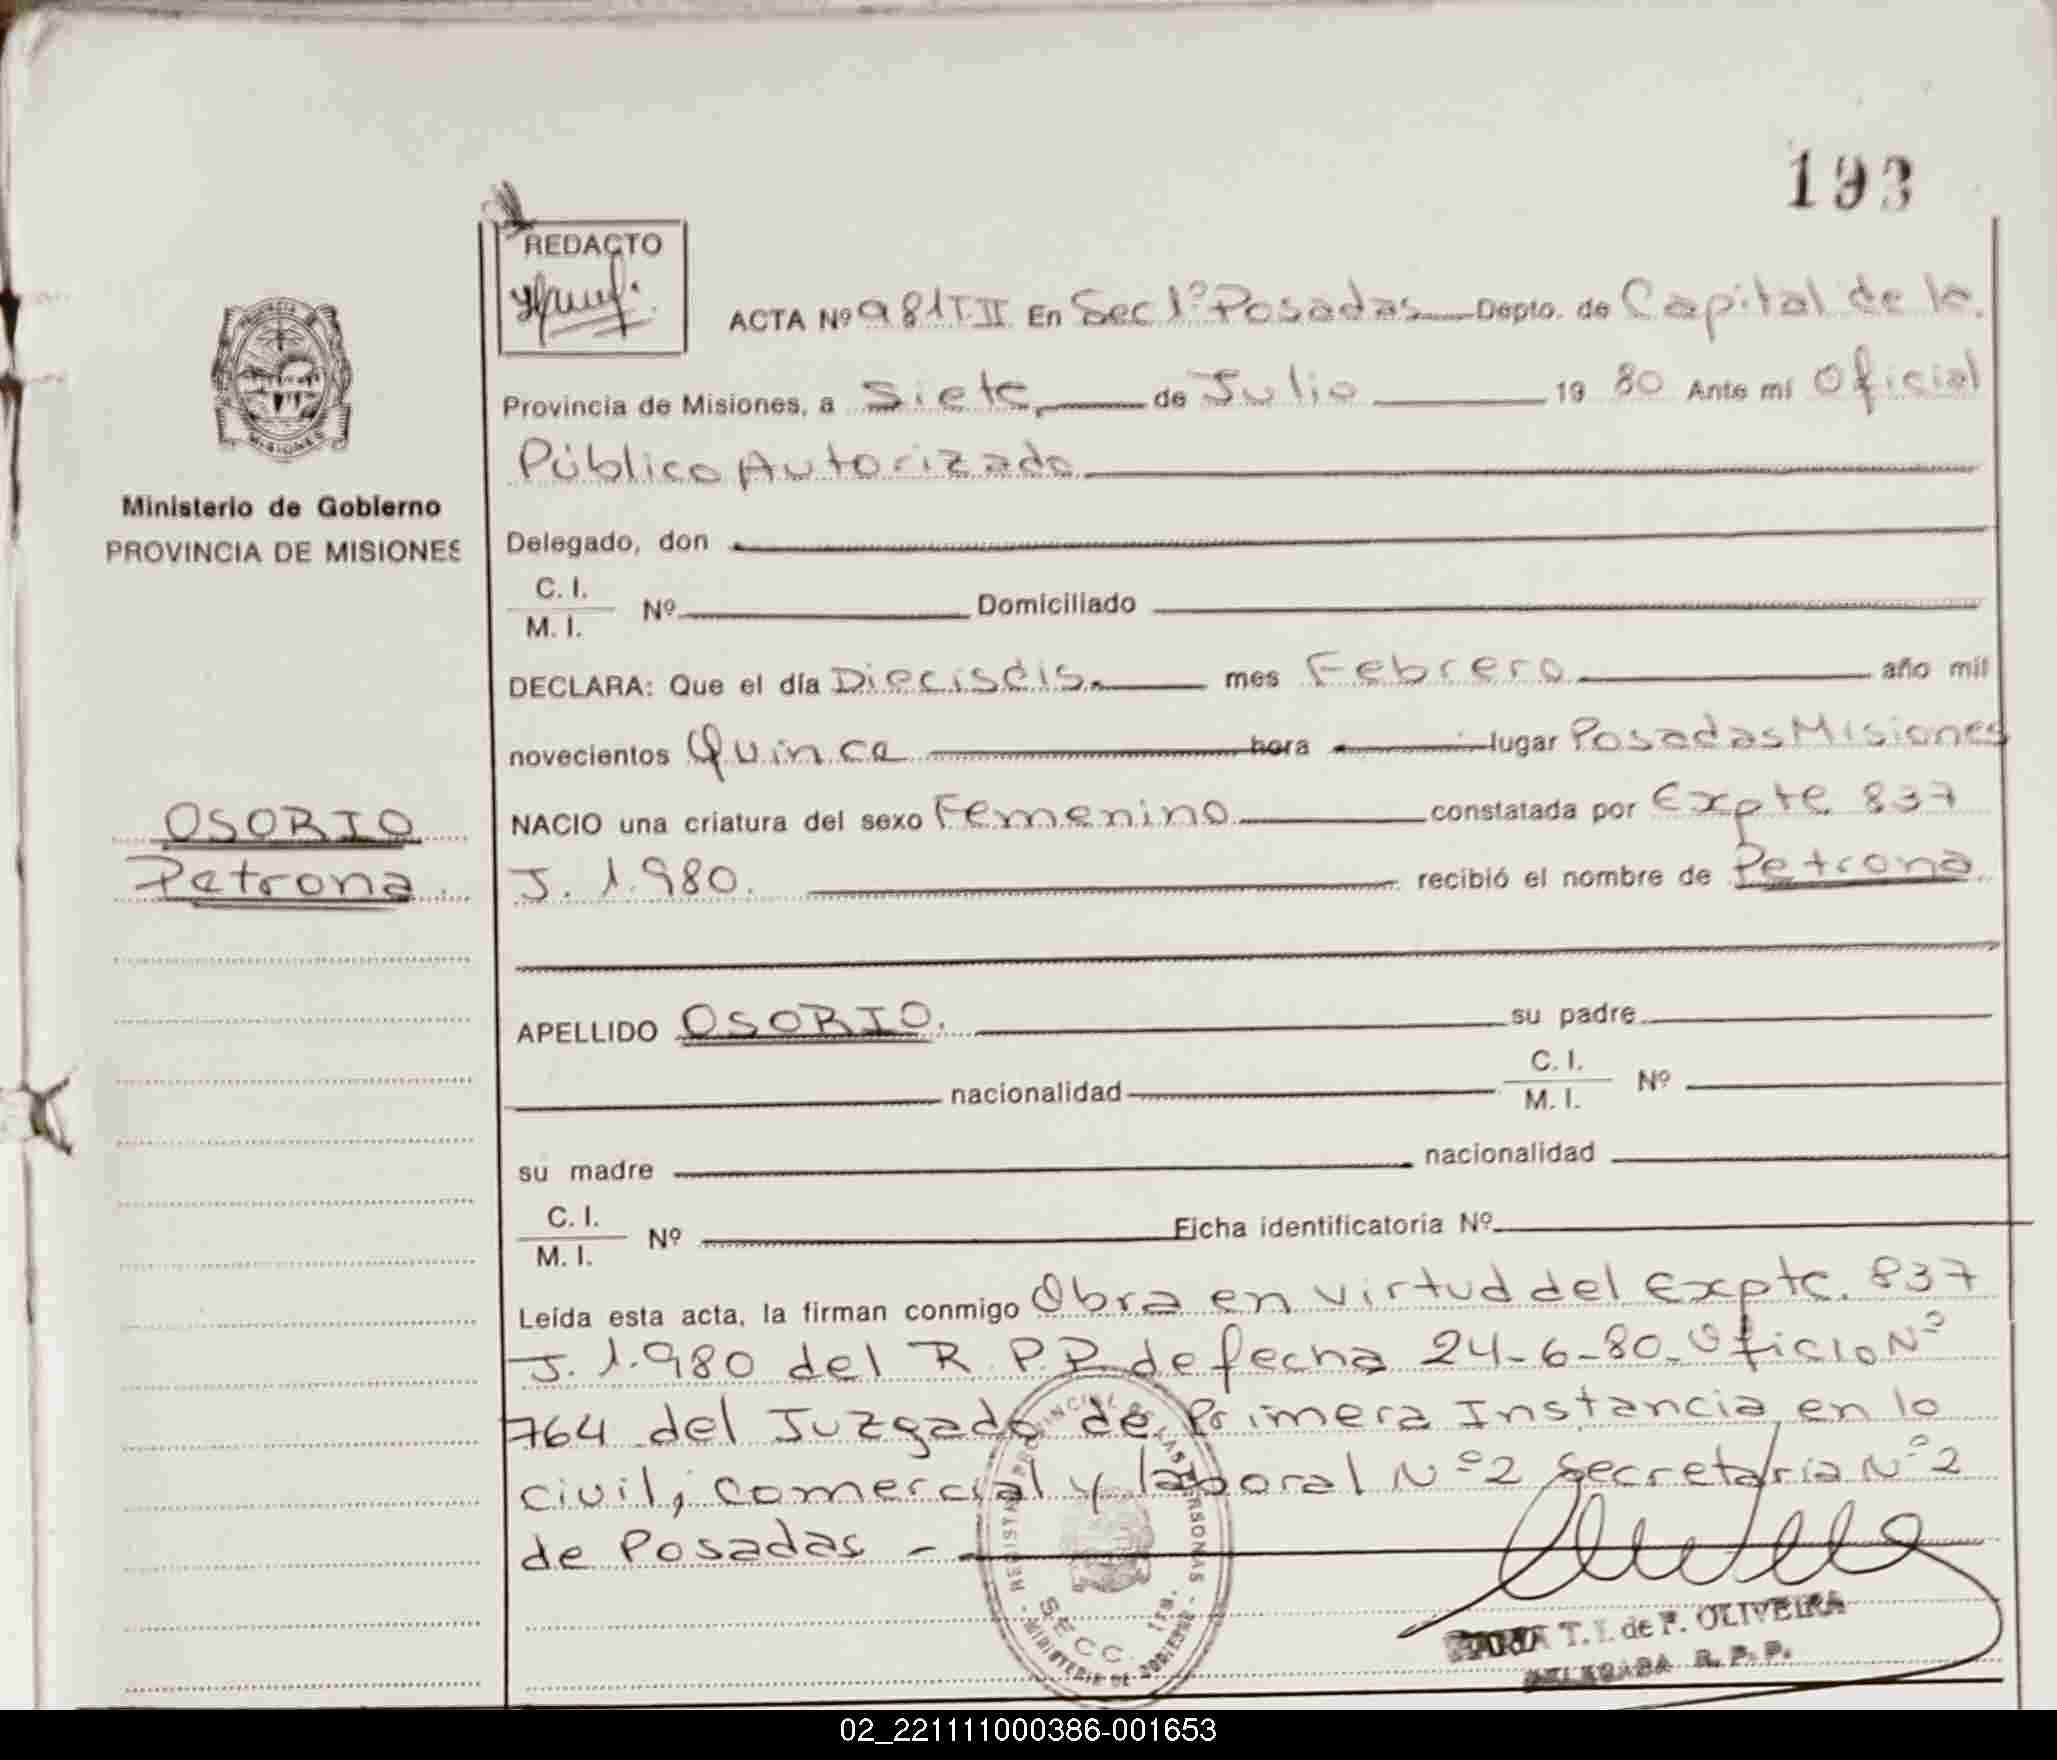 193
REDACTO
ACTA Nº 981 T. II En Sec 1º Posadas Depto. de Capital de la
Provincia de Misiones, a Siete de Julio 19 80 Ante mí Oficial
Público Autorizado
Ministerio de Gobierno
PROVINCIA DE MISIONES
Delegado, don
C. I.
M. I.
Nº Domiciliado
DECLARA: Que el día Dieciséis mes Febrero año mil
novecientos Quince hora lugar Posadas Misiones
OSORIO
Petrona
NACIO una criatura del sexo Femenino constatada por Expte 837
J. 1.980. recibió el nombre de Petrona
APELLIDO OSORIO. su padre
nacionalidad C. I.
M. I. Nº
su madre nacionalidad
C. I.
M. I.
Nº Ficha identificatoria Nº
Leída esta acta, la firman conmigo Obra en virtud del Expte. 837
J. 1.980 del R.P.P. de fecha 24-6-80. Oficio Nº
764 del Juzgado de Primera Instancia en lo
civil, comercial y laboral Nº 2 Secretaria Nº 2
de Posadas -
REGISTRO PROVINCIAL DE LAS PERSONAS
SECC. 1ra.
MINISTERIO DE GOBIERNO
T. I. de F. OLIVEIRA
DELEGADA R. P. P.
02_221111000386-001653